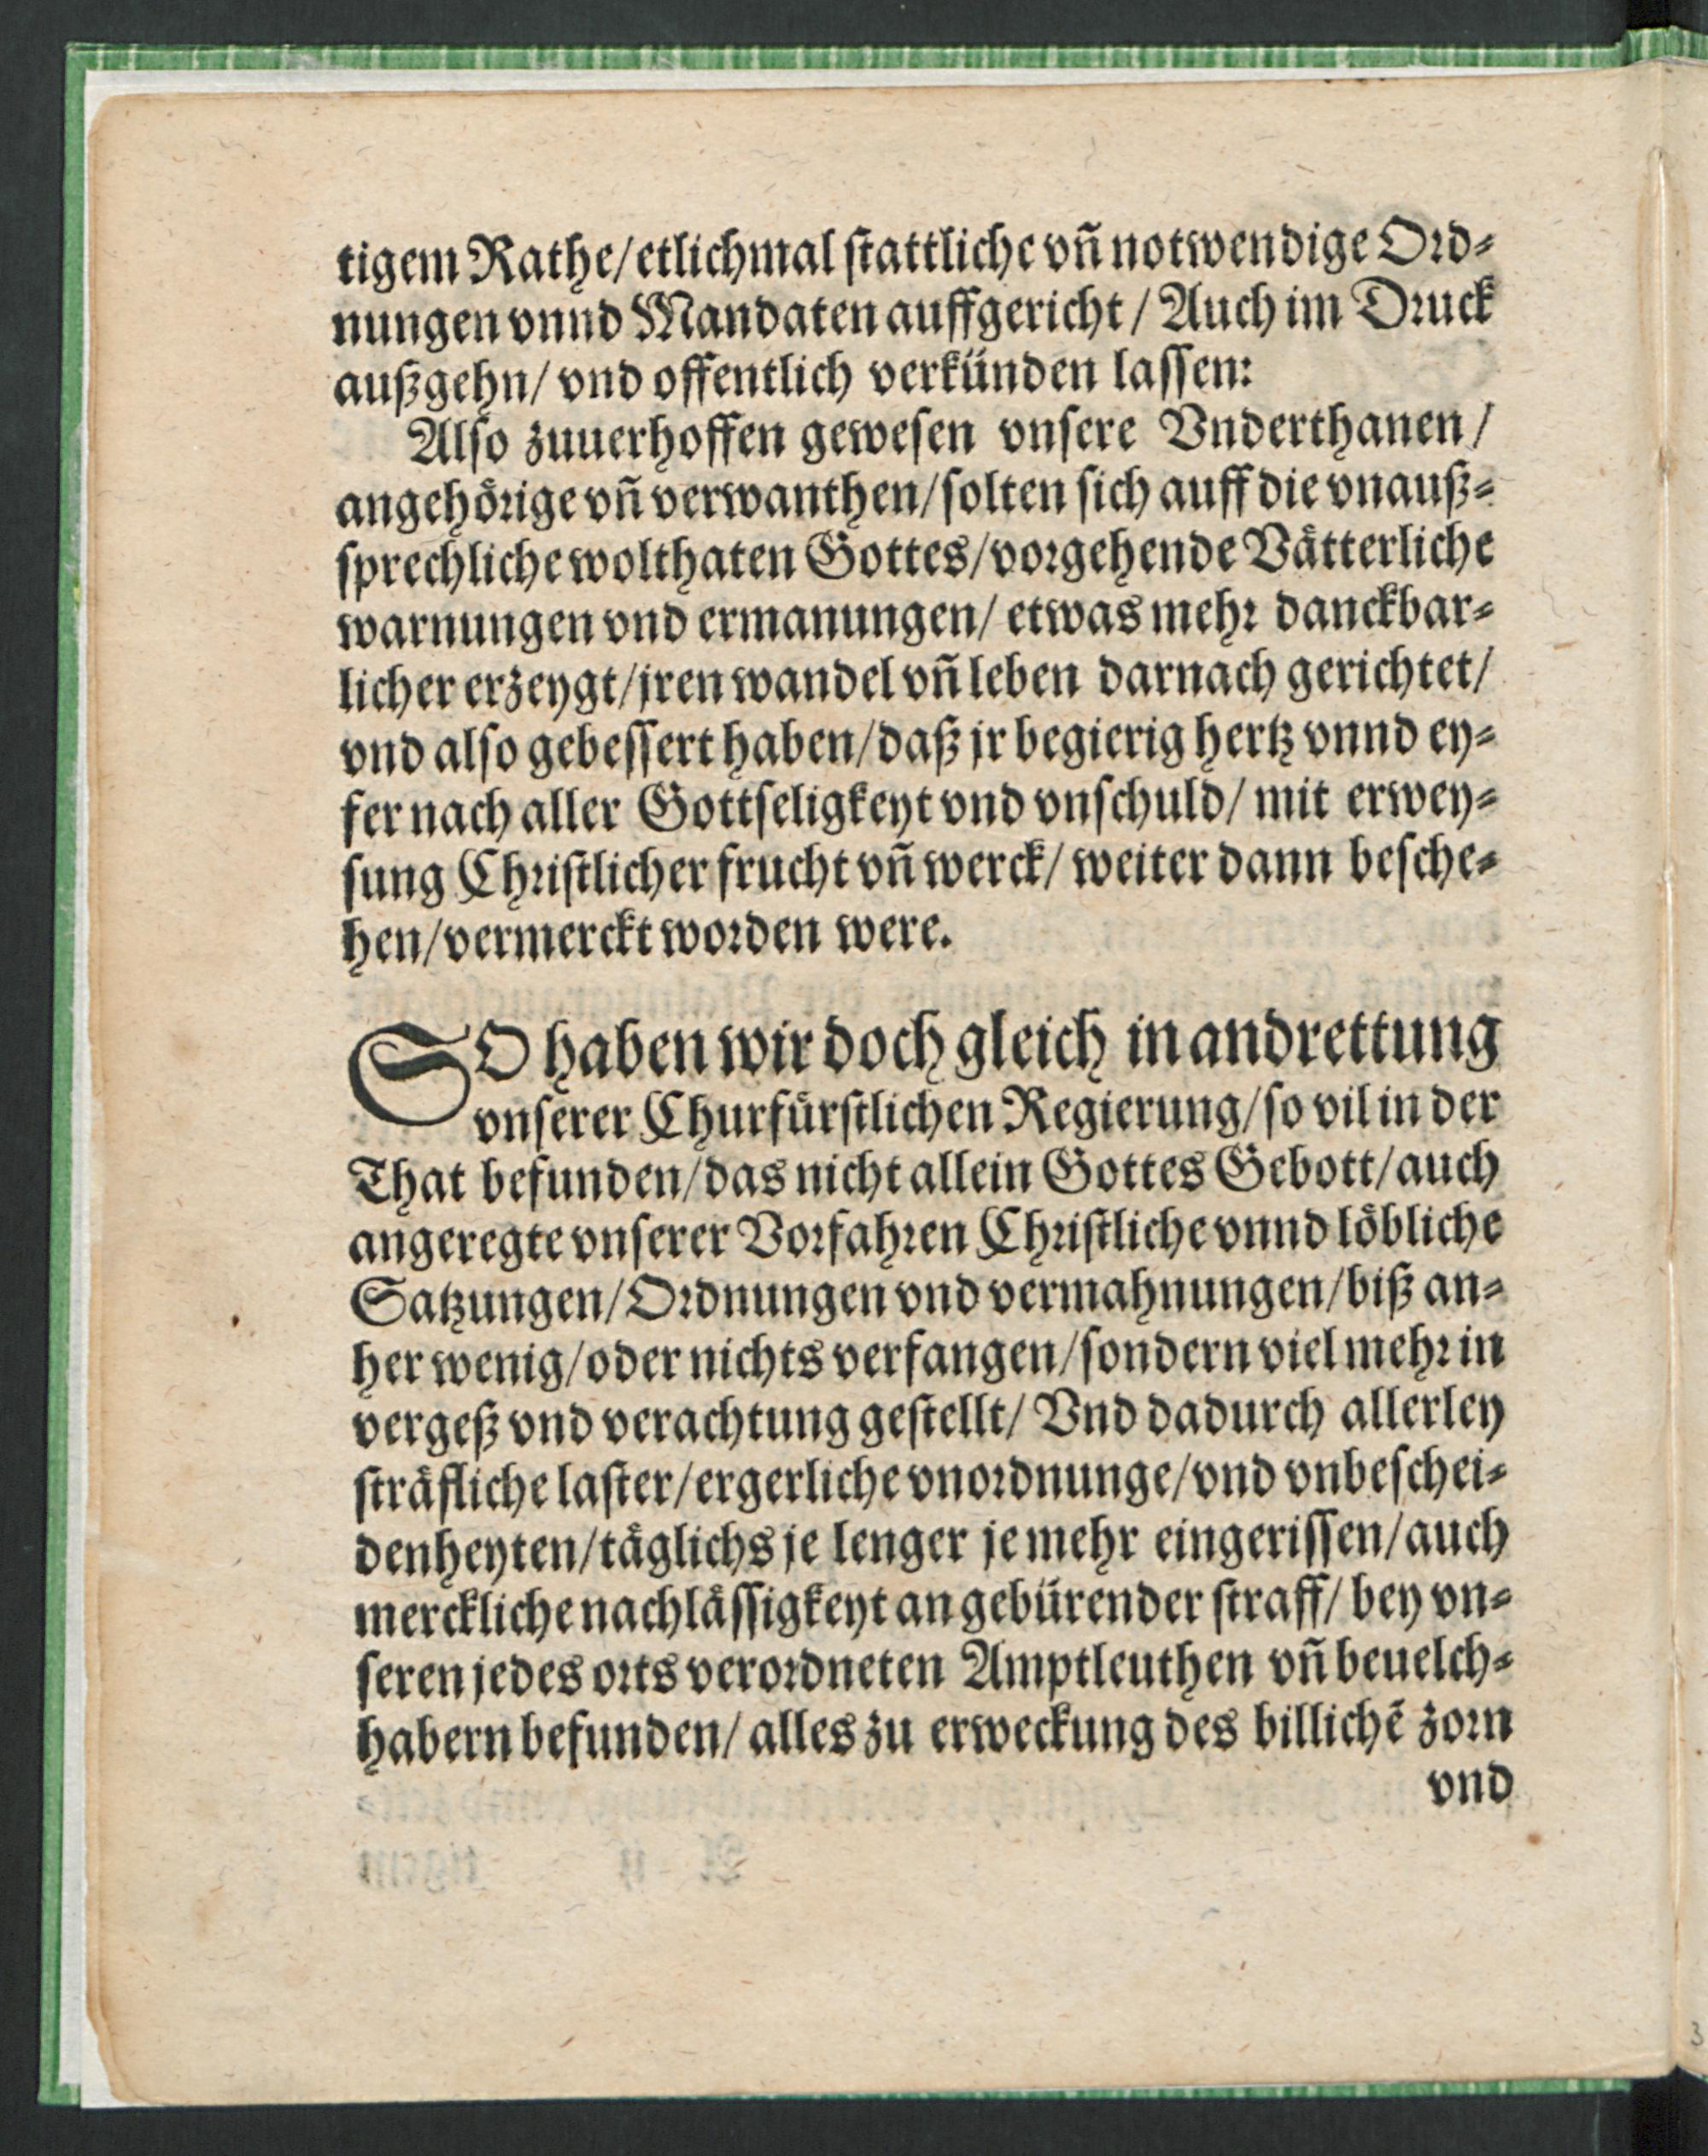 tigem Rathe/etlichmal stattliche vñ notwendige Ord⸗
nungen vnnd Mandaten auffgericht / Auch im Druck
außgehn/ vnd offentlich verkünden lassen:
Also zuuerhoffen gewesen vnsere Vnderthanen /
angehörige vñ verwanthen/solten sich auff die vnauß⸗
sprechliche wolthaten Gottes/vorgehende Vätterliche
warnungen vnd ermanungen/ etwas mehr danckbar⸗
licher erzeygt/jren wandel vñ leben darnach gerichtet/
vnd also gebessert haben/daß jr begierig hertz vnnd ey⸗
fer nach aller Gottseligkeyt vnd vnschuld/ mit erwey⸗
sung Christlicher frucht vñ werck/ weiter dann besche⸗
hen/vermerckt worden were.
SO haben wir doch gleich in andrettung
vnserer Churfürstlichen Regierung/so vil in der
That befunden/das nicht allein Gottes Gebott/auch
angeregte vnserer Vorfahren Christliche vnnd löbliche
Satzungen/Ordnungen vnd vermahnungen/biß an⸗
her wenig/oder nichts verfangen/sondern viel mehr in
vergeß vnd verachtung gestellt/ Vnd dadurch allerley
sträfliche laster/ergerliche vnordnunge/vnd vnbeschei⸗
denheyten/täglichs je lenger je mehr eingerissen/auch
merckliche nachlässigkeyt an gebürender straff/ bey vn⸗
seren jedes orts verordneten Amptleuthen vñ beuelch⸗
habern befunden/ alles zu erweckung des billichẽ zorn
vnd